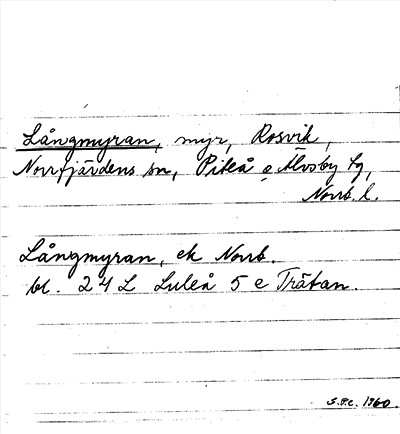 Långmyran, myr, Rosvik,
Norrfjärdens sn, Piteå o Älvsby tg,
Norrb. l.
Långmyran, ek Norrb.
bl. 24 L Luleå 5 e Trätan.
S.P.C. 1960.